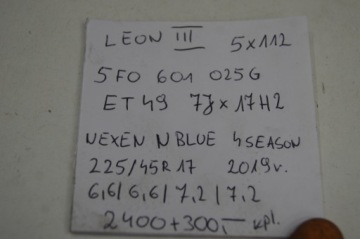 LEON III 5x112
5F0 601 025G
ET 49 7Jx17H2
NEXEN N BLUE 4SEASON
225/45R17 2019r.
6,6/6,6/7,2/7,2
2400+300,- kpl.